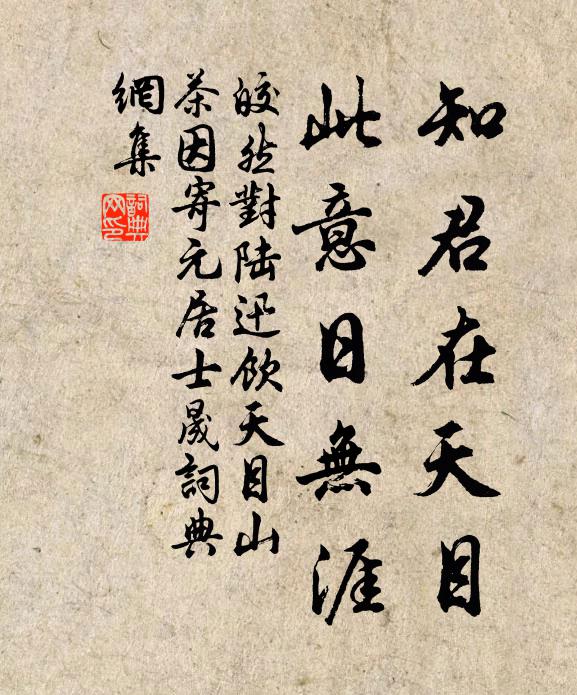 知君在天目
此意日無涯
皎然對陸迅飲天目山
茶因寄元居士晟詞典
網集
詞典網印